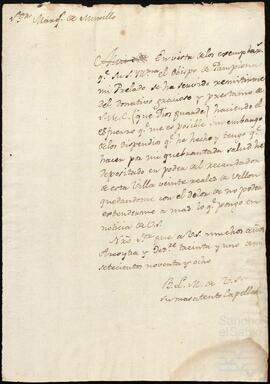 Sʳ. Marqˢ. de Murillo
En vista de los exemplares
qᵉ Su Sʳ Illma el Obispo de Pamplona
mi Prelado se ha servido remitirme
del Donativo gracioso y prestamo de
S. M. C. (que Dios guarde) haciendo el
esfuerzo qᵉ me es posible sin embargo
de los dispendios qᵉ he hecho y tengo qᵉ
hacer por mi quebrantada salud he
depositado en poder del recaudador
de esta Villa veinte reales de Vellon
quedandome con el dolor de no poder
estenderme a mas lo qᵉ pongo en
noticia de V.S.
Nrô Sʳ gue a V.S. muchos años
y Diciᵉ treinta y uno de mil
setecientos noventa y ocho
B. L. M. de V. S.
su mas atento Capellan
Sancho
el Sabio